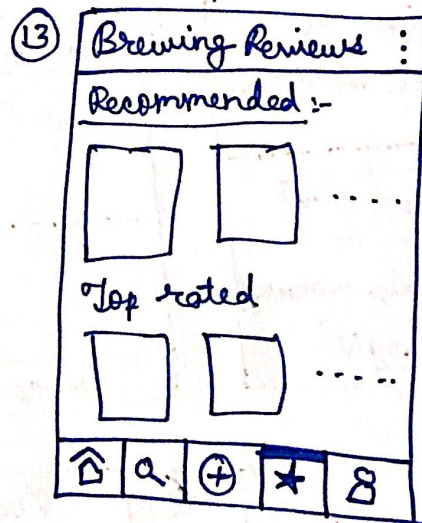 13
Brewing Reviews
Recommended :-
Top rated